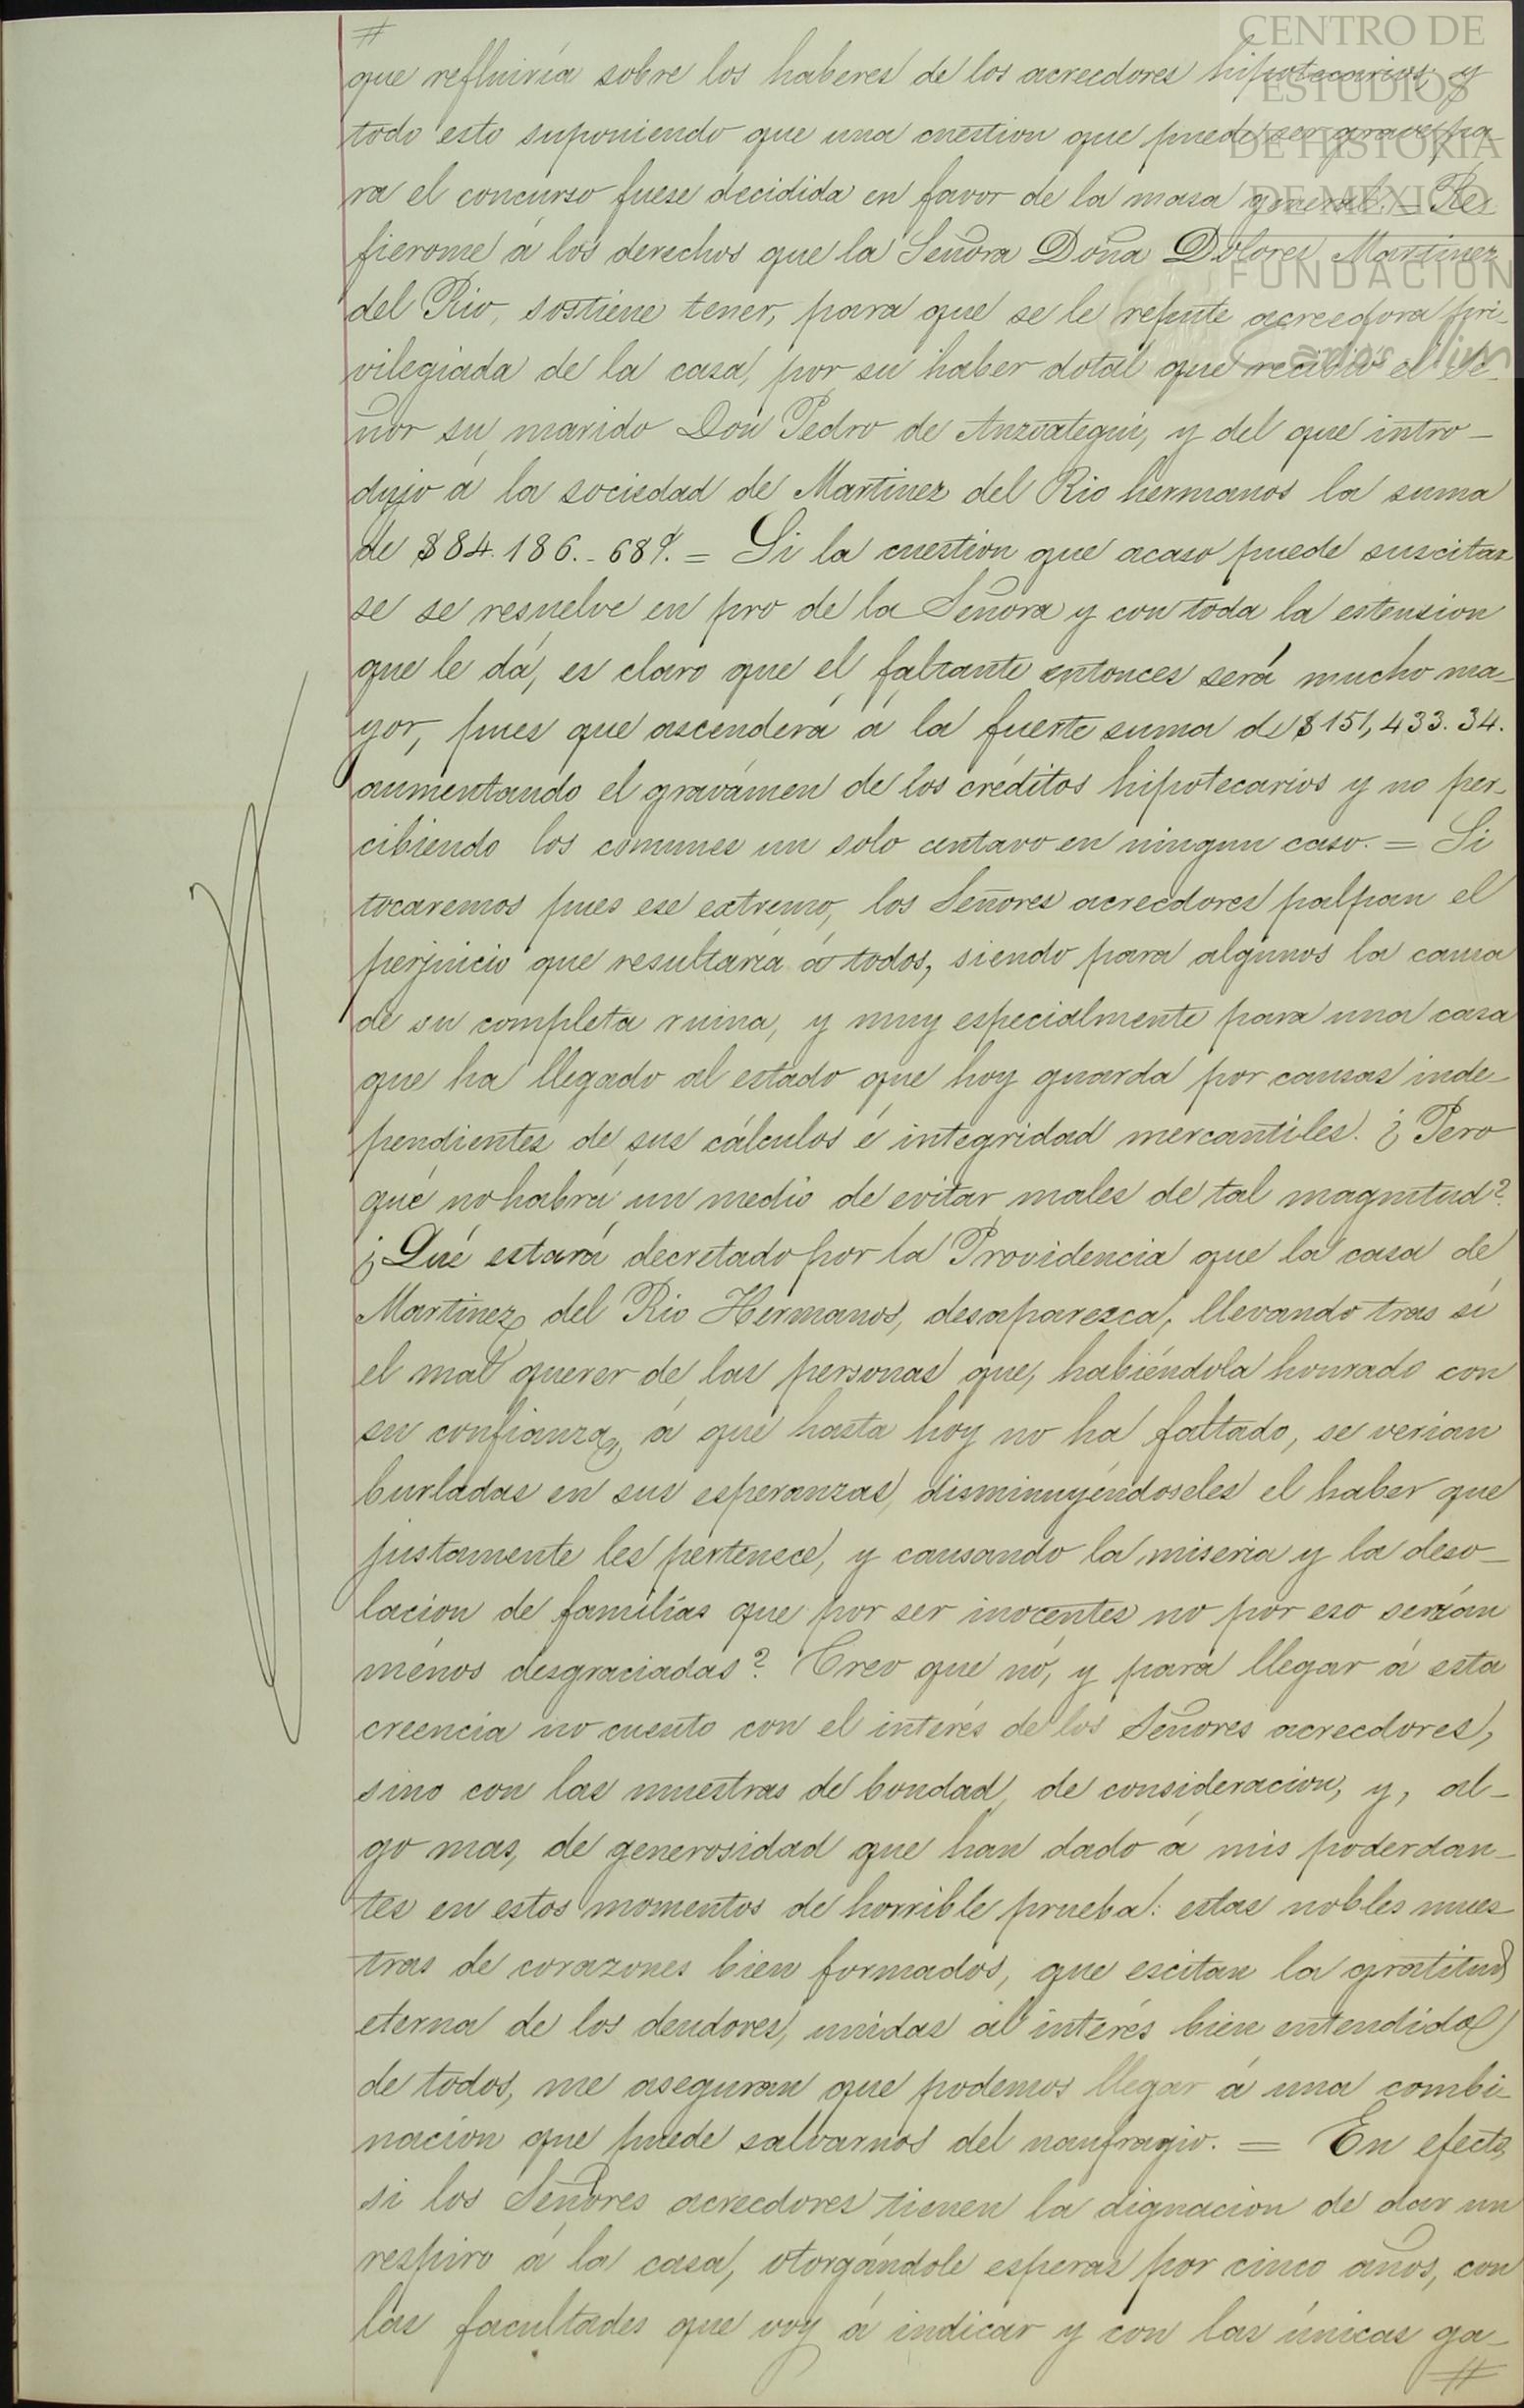 #
que refluiría sobre los haberes de los acreedores hipotecarios; y
todo esto suponiendo que una cuestion que puede ser grave pa-
ra el concurso fuese decidida en favor de la masa general. = Re-
fierome á los derechos que la Señora Doña Dolores Martinez
del Rio, sostiene tener, para que se le repute acreedora pri-
vilegiada de la casa, por su haber dotal que recibió el Se-
ñor su marido Don Pedro de Anzoategui, y del que intro-
dujo á la sociedad de Martinez del Rio hermanos la suma
de $84.186.-68 = Si la cuestion que acaso puede suscitar
se se resuelve en pro de la Señora y con toda la estension
que le dá, es claro que el faltante entonces será mucho ma-
yor, pues que ascenderá á la fuerte suma de $151,433.34.
aumentando el gravámen de los créditos hipotecarios y no per-
cibiendo los comunes un solo centavo en ningun caso. = Si
tocaremos pues ese extremo, los Señores acreedores palpan el
perjuicio que resultaría á todos, siendo para algunos la causa
de su completa ruina, y muy especialmente para una casa
que ha llegado al estado que hoy guarda por causas inde-
pendientes de sus cálculos é integridad mercantiles. ¿Pero
qué no habrá un medio de evitar males de tal magnitud?
¿Qué estará decretado por la Providencia que la casa de
Martinez del Rio Hermanos, desaparezca, llevando tras sí
el mal querer de las personas que, habiéndola honrado con
su confianza, á que hasta hoy no ha faltado, se verian
burladas en sus esperanzas, disminuyéndoseles el haber que
justamente les pertenece, y causando la miseria y la deso-
lacion de familias que por ser inocentes no por eso serían
ménos desgraciadas? Creo que nó, y para llegar á esta
creencia no cuento con el interés de los Señores acreedores,
sino con las muestras de bondad, de consideracion, y, al-
go mas, de generosidad que han dado á mis poderdan-
tes en estos momentos de horrible prueba: estas nobles mues-
tras de corazones bien formados, que escitan la gratitud
eterna de los deudores, unidas al interés bien entendido
de todos, me aseguran que podemos llegar á una combi-
nacion que puede salvarnos del naufragio. = En efecto,
si los Señores acreedores tienen la dignacion de dar un
respiro á la casa, otorgándole esperas por cinco años, con
las facultades que voy á indicar y con las únicas ga-
#
CENTRO DE
ESTUDIOS
DE HISTORIA
DE MEXICO
FUNDACION
Carlos Slim